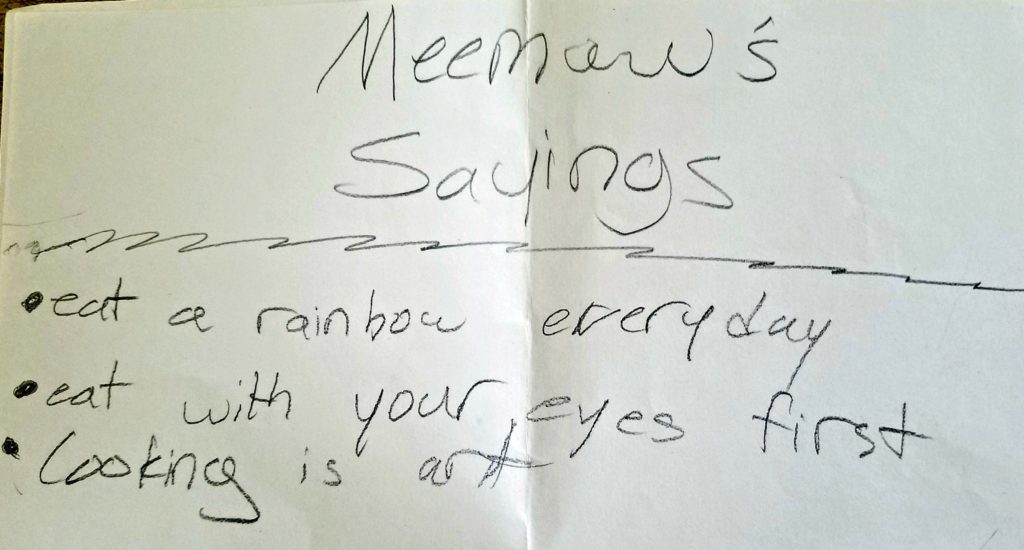 Meemaw's
Sayings
•eat a rainbow everyday
•eat with your eyes first
•Cooking is art